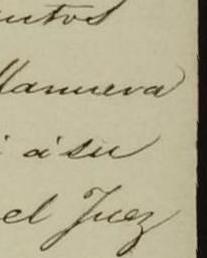 llanueva
á su
el Juez